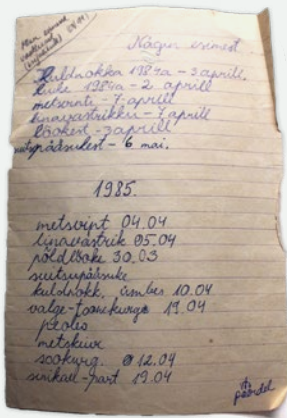 Nägin esimest
Kuldnokka 1984a - 3. aprill.
kuke 1984a - 2. aprill
metsvinti - 7. aprill
linavästrikku - 7. aprill
lõokest - 3 aprill
suitsupääsukest - 6 mai.
1985.
metsvint 04.04
linavästrik 05.04
põldlõoke 30.03
suitsupääsuke
kuldnokk. umbes 10.04
valge-toonekurge 19.04
peoleo
metskiur
sookurg. 12.04
sinikael-part 19.04